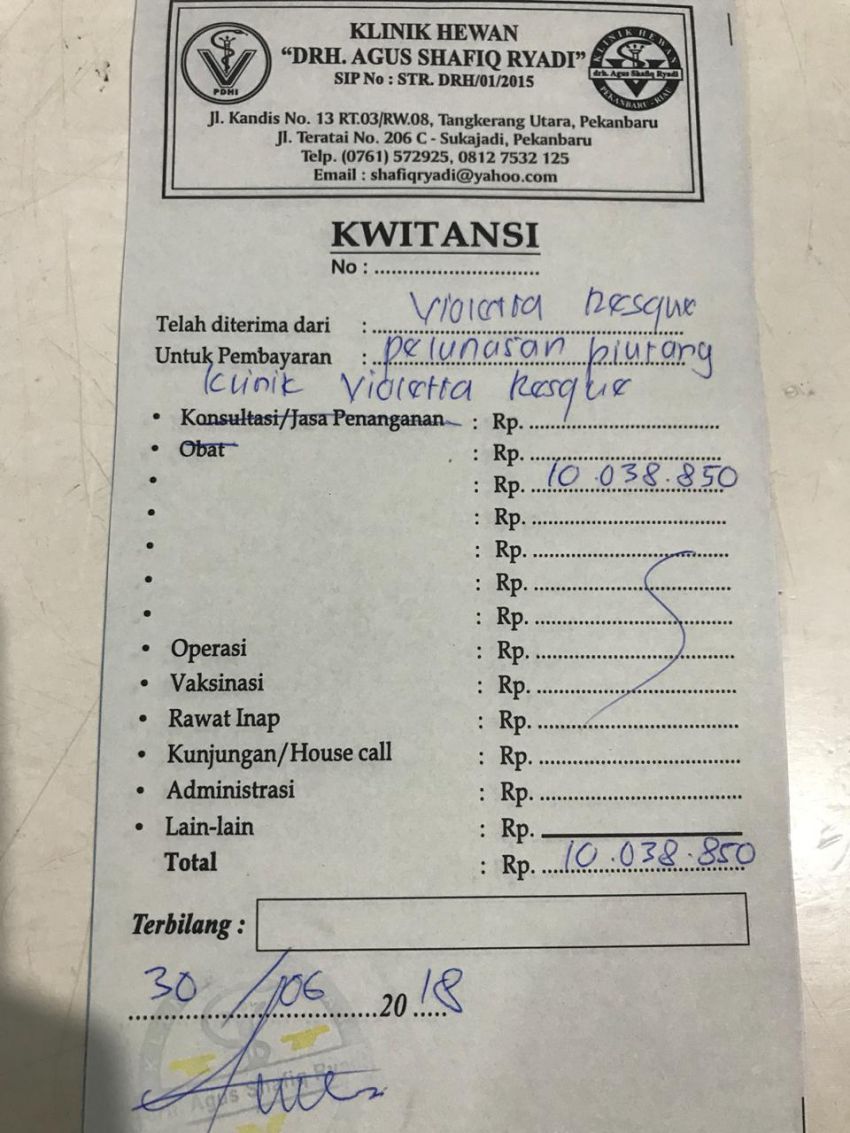 KLINIK HEWAN
"DRH. AGUS SHAFIQ RYADI"
SIP No : STR. DRH/01/2015
PDHI
KLINIK HEWAN
drh. Agus Shafiq Ryadi
PEKANBARU - RIAU
Jl. Kandis No. 13 RT.03/RW.08, Tangkerang Utara, Pekanbaru
Jl. Teratai No. 206 C - Sukajadi, Pekanbaru
Telp. (0761) 572925, 0812 7532 125
Email : shafiqryadi@yahoo.com
KWITANSI
No : ................................
Telah diterima dari : Violetta Resque
Untuk Pembayaran : pelunasan piutang
Klinik Violetta Resque
• Konsultasi/Jasa Penanganan : Rp. ................................
• Obat : Rp. ................................
• : Rp. 10.038.850
• : Rp. ................................
• : Rp. ................................
• : Rp. ................................
• : Rp. ................................
• Operasi : Rp. ................................
• Vaksinasi : Rp. ................................
• Rawat Inap : Rp. ................................
• Kunjungan/House call : Rp. ................................
• Administrasi : Rp. ................................
• Lain-lain : Rp.
Total : Rp. 10.038.850
Terbilang :
30/06 2018
Agus Shafiq Ry